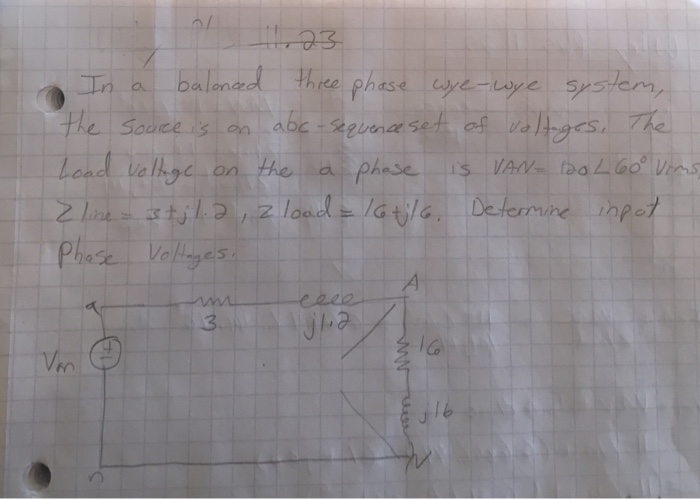 11.23
In a balanced three phase wye-wye system,
the Souce is an abc-sequence set of voltages. The
Load voltage on the a phase is VAN= 120∠60° Vrms,
Zline = 3+j1.2, Zload = 16+j16. Determine input
Phase Voltages.
a A
3 j1.2
Van + 16
j16
n N